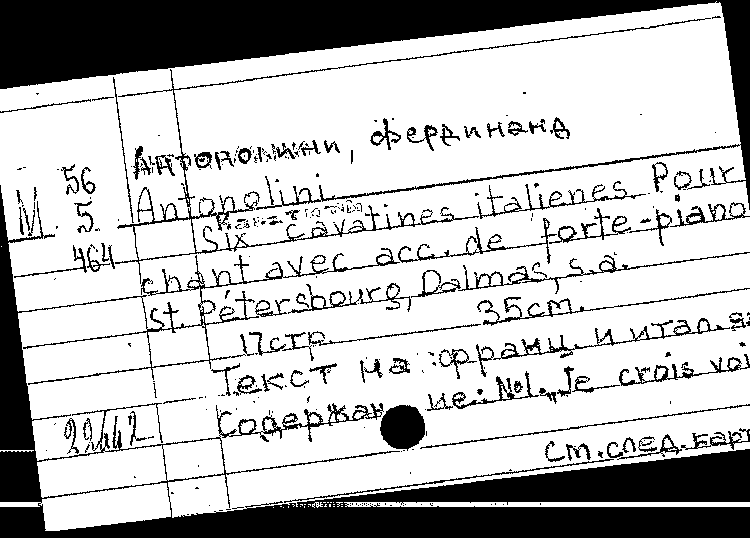 Антонолини, Фердинанд
56
М 5 Antonolini
464
Six cavatines italienes. Pour
chant avec acc. de forte-piano
st. Pétersbourg, Dalmas, s.a.
17 стр. 35 cm.
Текст на франц. и итал. яз
Содержание: №1. „Je crois voi
22442
См. след. карт